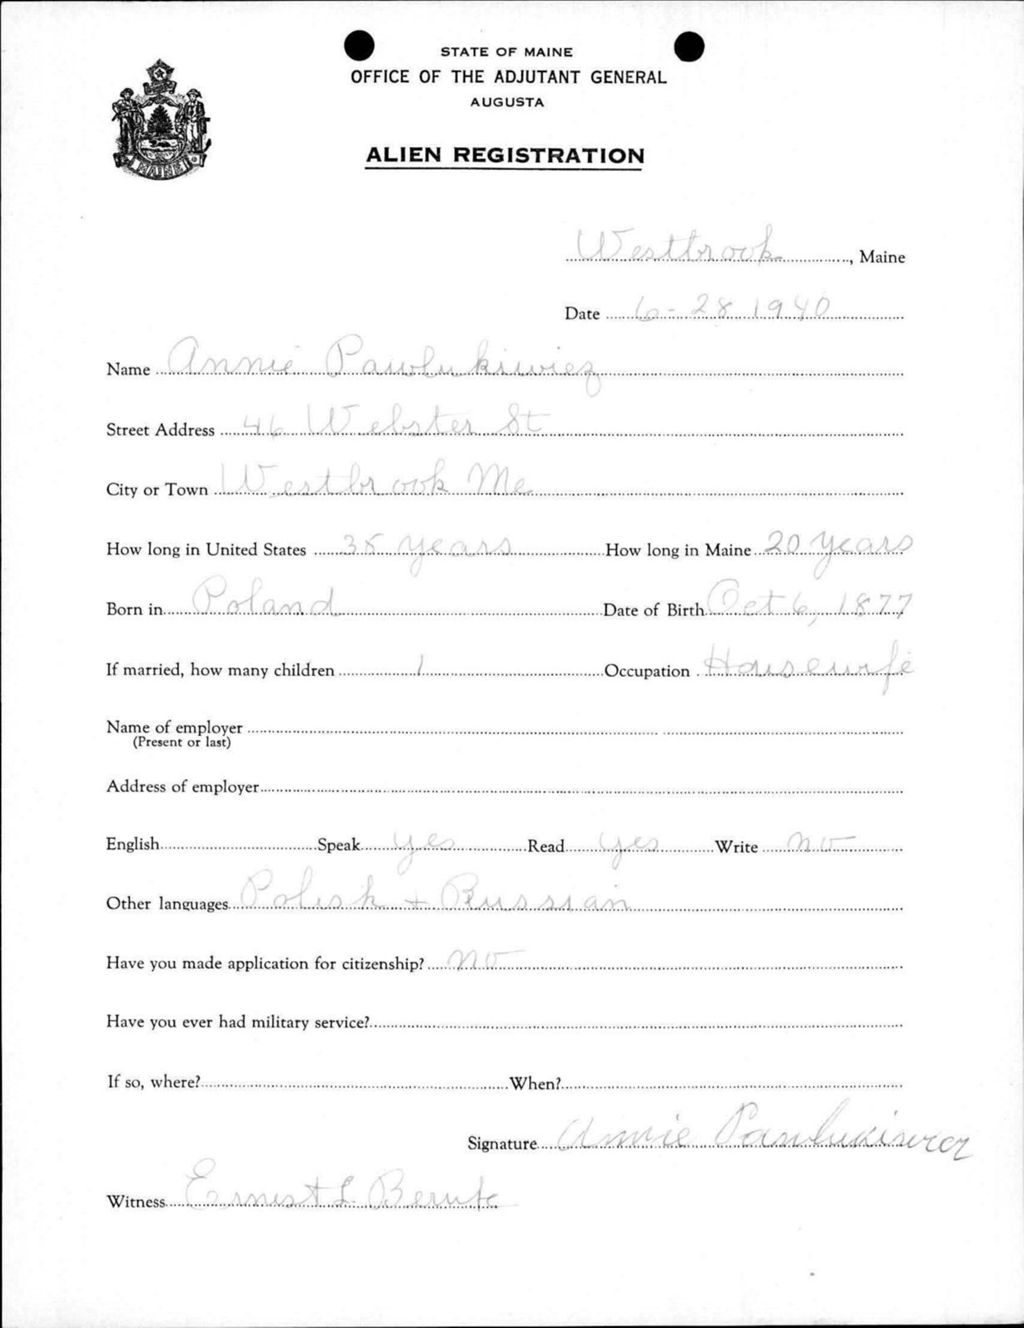 STATE OF MAINE
OFFICE OF THE ADJUTANT GENERAL
AUGUSTA
ALIEN REGISTRATION
MAINE
Westbrook, Maine
Date 6-28 1940
Name Annie Pawlukiwiez
Street Address 46 Webster St
City or Town Westbrook Me
How long in United States years How long in Maine 20 years
Born in Poland Date of Birth Oct 6, 1877
If married, how many children 1 Occupation Housewife
Name of employer
(Present or last)
Address of employer
English Speak yes Read yes Write no
Other languages Polish + Russian
Have you made application for citizenship? no
Have you ever had military service?
If so, where? When?
Signature Annie Pawlukiwiez
Witness Ernest L.